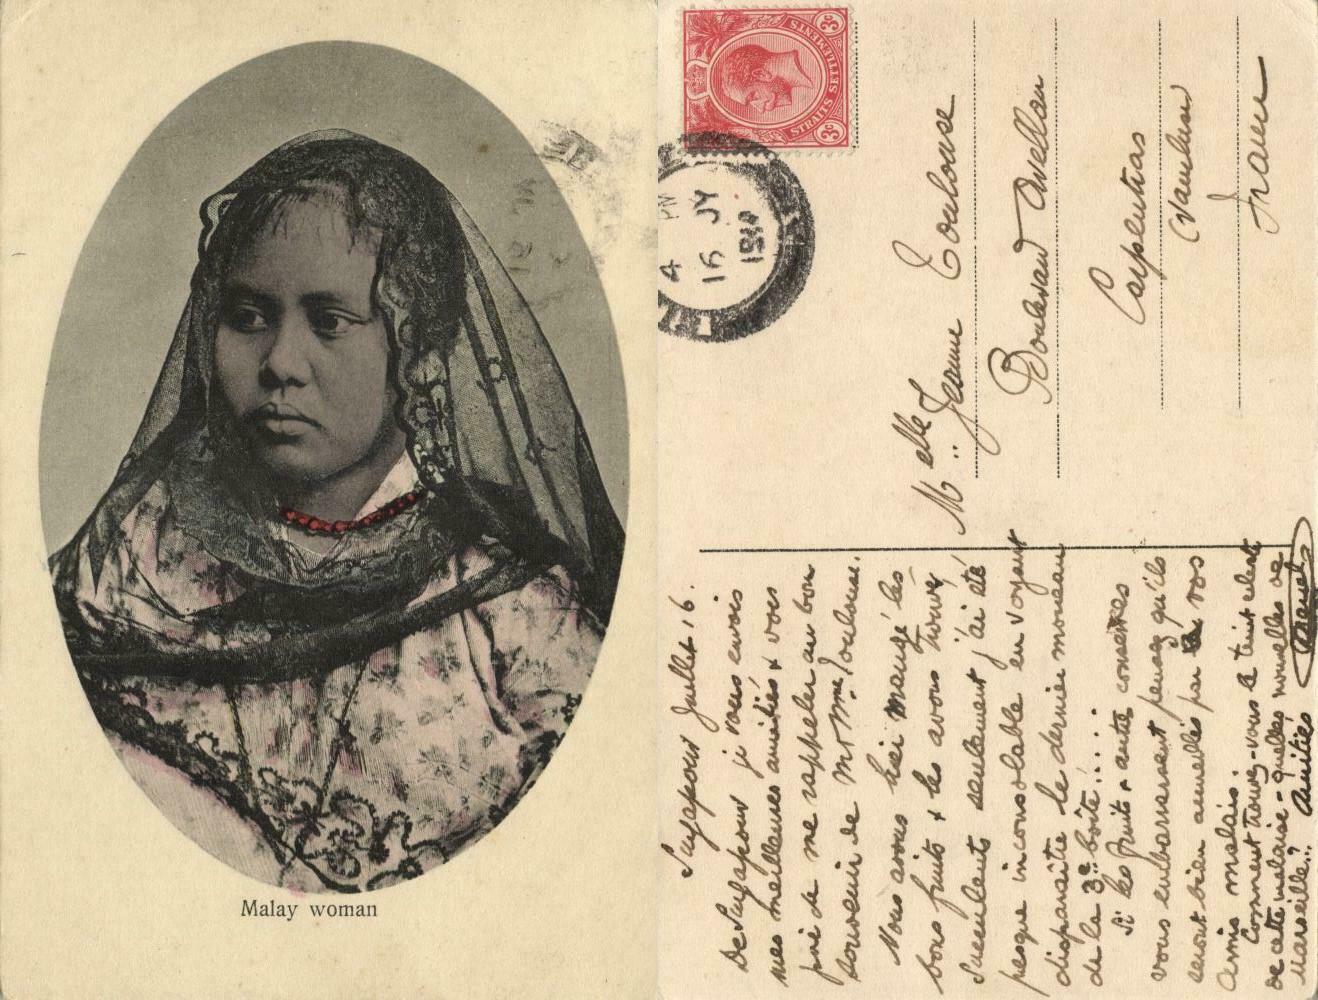 Malay woman
STRAITS SETTLEMENTS
3c 3c
4 PM
16 JY
Melle Jeanne Toulouse
Boulevard Avellan
Carpentras
Vaucluse
France
Singapour Juillet 16.
De Singapour je vous envois
mes meilleures amitiés & vous
prie de me rappeler au bon
souvenir de Mr & Mme Toulouse.
Nous avons hier mangé les
bons fruits & les avons trouvé
succulents seulement j'ai été
presque inconsolable en voyant
disparaitre le dernier morceau
de la 3e boite.....
Si les fruits & autre conserves
vous embarrassent pensez qu'ils
seront bien accueillis par vos
amis malais.
Comment trouvez-vous le teint
de cette malaise - quelles nouvelles de
Marseille? Amitiés